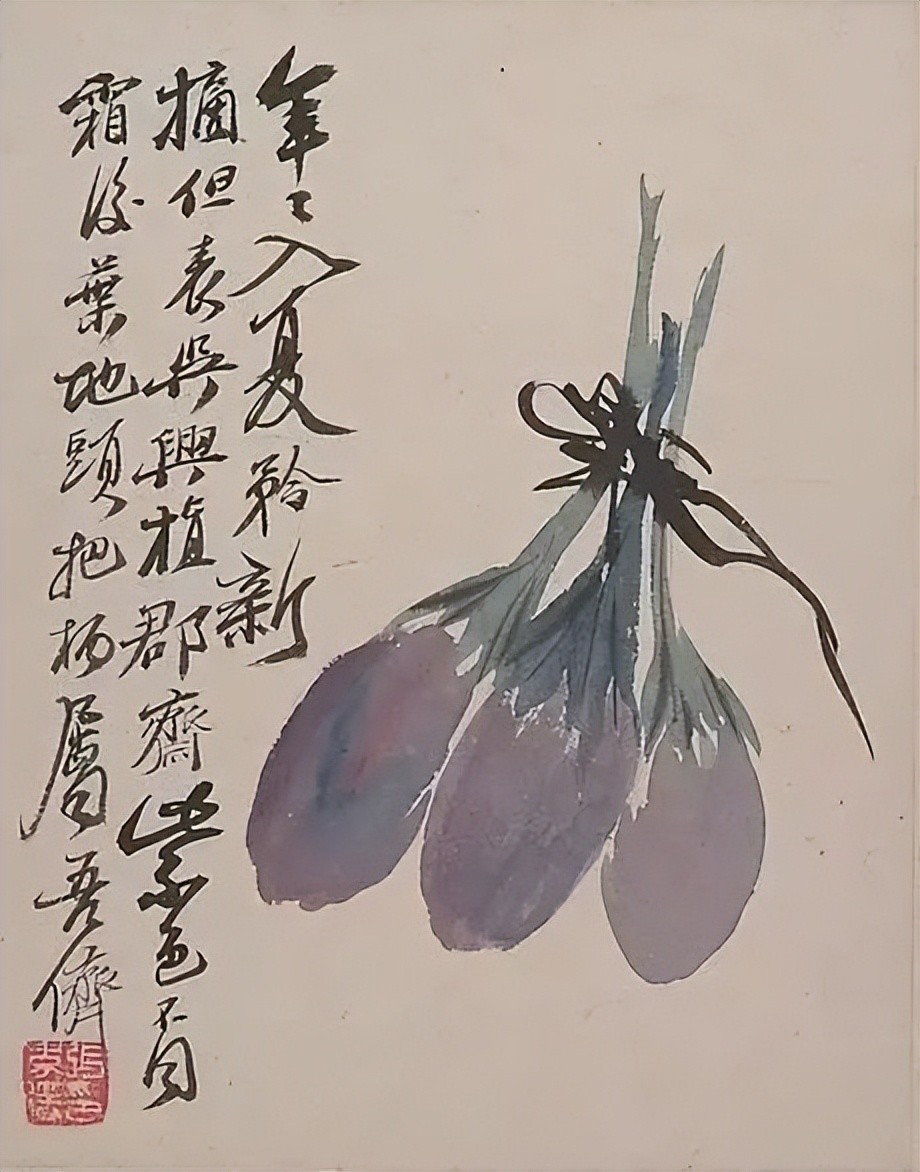 年〻入夏矜新
摘但表吳興植郡齋紫色不同
霜後葉地頭把柄屬吾儕